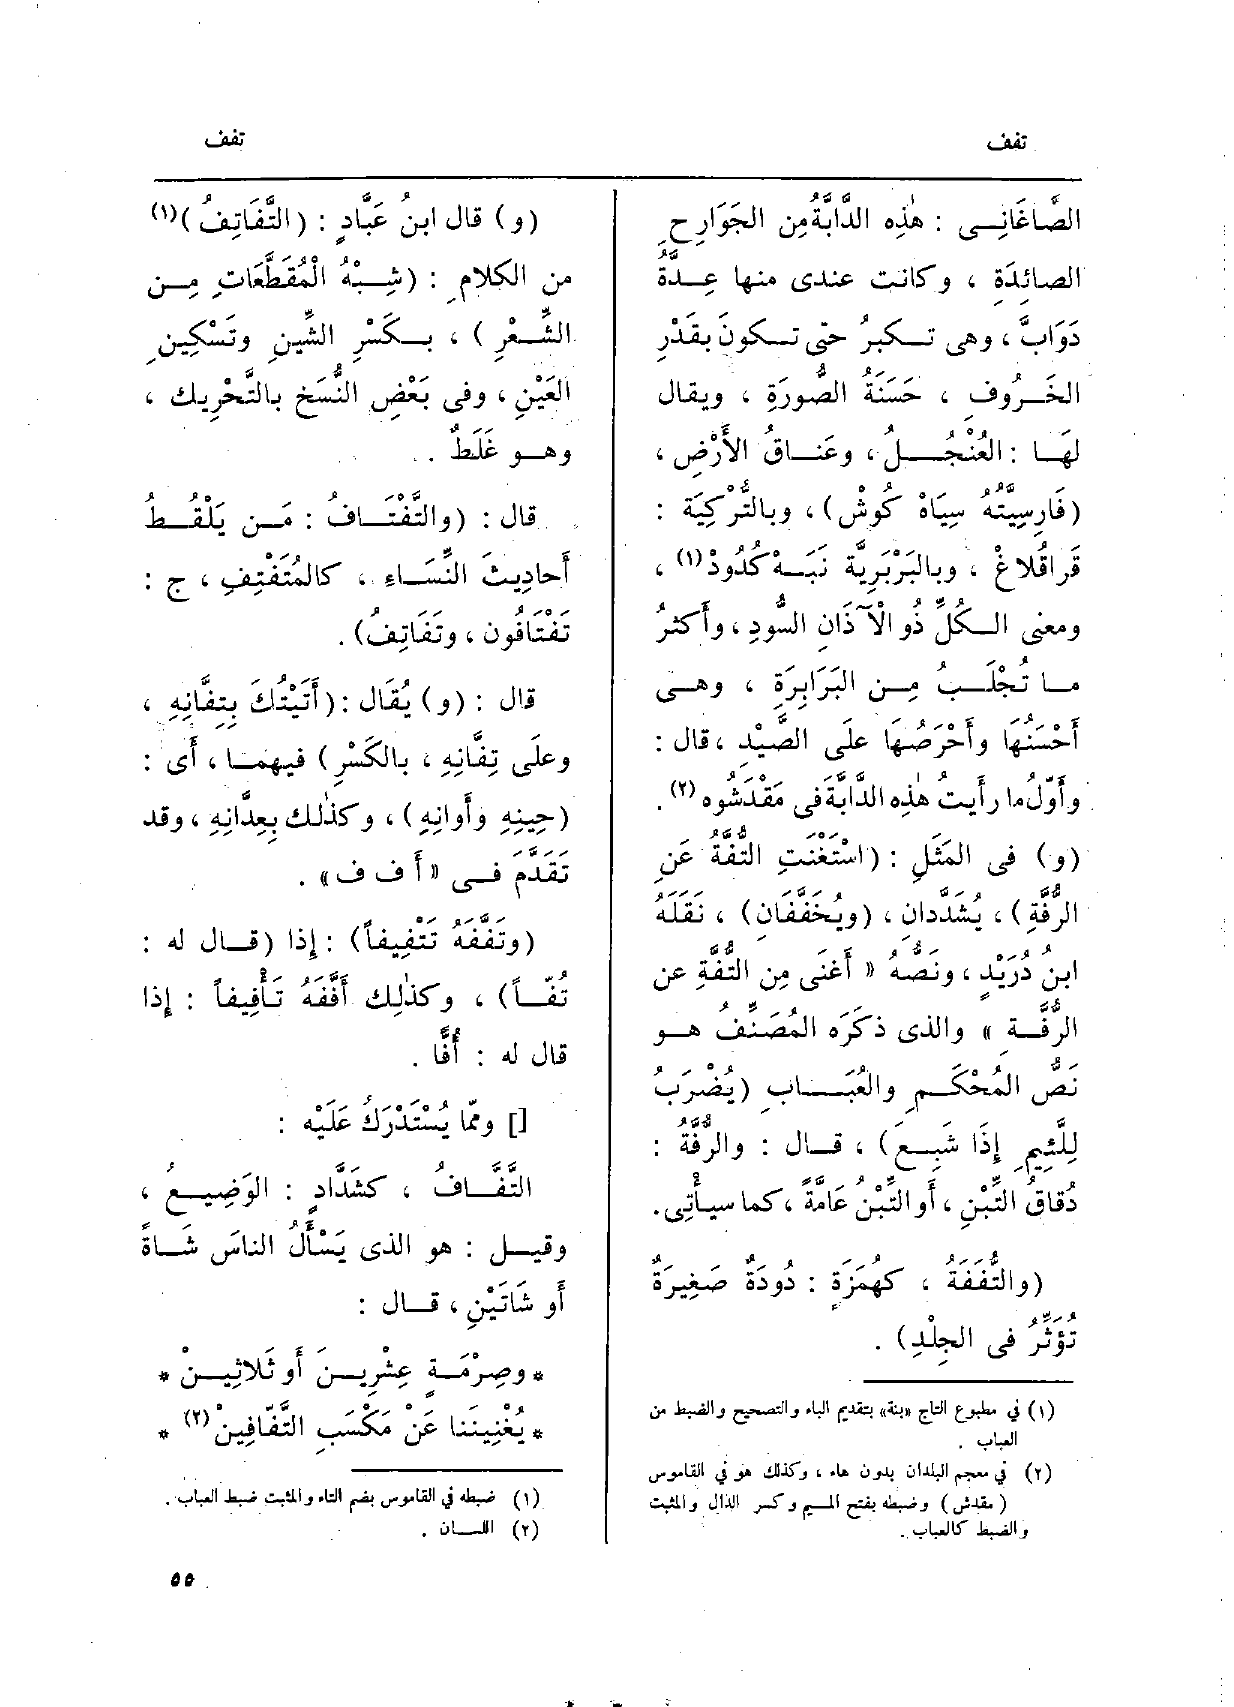 تفف
تفف
الصَّاغَانِــى : هٰذِه الدَّابَّةُ مِن الجَوَارِحِ
الصــائِدَةِ ، وكانت عندى منها عِــدَّةُ
دَوَابَّ ، وهى تــكبرُ حتى تــكونَ بقَدْرِ
الخَــرُوفِ ، حَسَنَةُ الصُّورَةِ ، ويقال
لهَــا : العُنْجُــــلُ ، وعَنــاقُ الأَرْضِ ،
(فَارِسِيَّتُهُ سِيَاهْ كُوشْ) ، وبالتُّرْكِيَّة :
قَراقُلاغْ ، وبالبَرْبَرِيَّة نَبَــهْ كُدُودْ (١) ،
ومعنى الــكُلِّ ذُو الْآذَانِ السُّودِ ، وأَكثرُ
مــا تُجْلَــبُ مِــن البَرَابِرَةِ ، وهــى
أَحْسَنُهَا وأَحْرَصُهَا علَى الصَّيْدِ ، قال :
وأَوّلُ ما رأَيتُ هٰذِه الدَّابَّة فى مَقْدَشُوه (٢) .
(و) فى المَثَلِ : (اسْتَغْنَتِ التُّفَّةُ عَنِ
الرُّفَّةِ) ، يُشَدَّدان ، (ويُخَفَّفَان) ، نَقَلَهُ
ابنُ دُرَيْدٍ ، ونَصُّهُ « أَغْنَى مِن التُّفَّةِ عن
الرُّفَّــة » والذى ذكَرَه المُصَنِّفُ هــو
نَصُّ المُحْكَــمِ والعُبَــــابِ (يُضْرَبُ
لِلَّئِيمِ إِذَا شَبِــعَ) ، قــال : والرُّفَّةُ :
دُقاقُ التِّبْنِ ، أَو التِّبْنُ عَامَّةً ، كما سيأْتِى.
(والتُّفَفَةُ ، كهُمَزَةٍ : دُودَةٌ صَغِيرَةٌ
تُؤَثِّرُ فى الجِلْدِ) .
(١) في مطبوع التاج «بنة» بتقديم الباء والتصحيح والضبط من
العباب .
(٢) في معجم البلدان بدون هاء ، وكذلك هو في القاموس
(مقدش) وضبطه بفتح المــيم وكسر الدال والمثبت
والضبط كالعباب .
(و) قال ابنُ عَبَّادٍ : (التَّفَاتِفُ) (١)
من الكلامِ : (شِبْــهُ المُقَطَّعَاتِ مِــن
الشِّــعْرِ) ، بــكَسْرِ الشِّينِ وتَسْكِينِ
العَيْنِ ، وفى بَعْضِ النُّسَخِ بالتَّحْرِيك ،
وهــو غَلَطٌ .
قال : (والتَّفْتَــافُ : مَــن يَلْقُــطُ
أَحادِيثَ النِّسَــاءِ ، كالمُتَفْتِفِ ، ج :
تَفْتَافُون ، وتَفَاتِفُ) .
قال : (و) يُقَال : (أَتَيْتُكَ بِتِفَّانِهِ ،
وعلَى تِفَّانِهِ ، بالكَسْرِ) فيهمــا ، أَى :
(حِينِهِ وأَوانِهِ) ، وكذٰلك بعِدَّانِهِ ، وقد
تَقَدَّمَ فــى « أ ف ف » .
(وتَفَّفَهُ تَتْفِيفاً) : إِذا (قــال له :
تُفّــاً) ، وكذٰلِك أَفَّفَهُ تَأْفِيفاً : إِذا
قال له : أُفًّا .
[] وممّا يُسْتَدْرَكُ عَلَيْه :
التَّفَّــافُ ، كشَدَّادٍ : الوَضِيــعُ ،
وقيــل : هو الذى يَسْأَلُ الناسَ شَــاةً
أَو شَاتَيْنِ ، قــال :
* وصِرْمَــةٍ عِشْرِيــنَ أَو ثَلاثِيــنْ *
* يُغْنِينَنا عَنْ مَكْسَبِ التَّفّافِينْ (٢) *
(١) ضبطه في القاموس بضم التاء والمثبت ضبط العباب .
(٢) اللســان .
٥٥